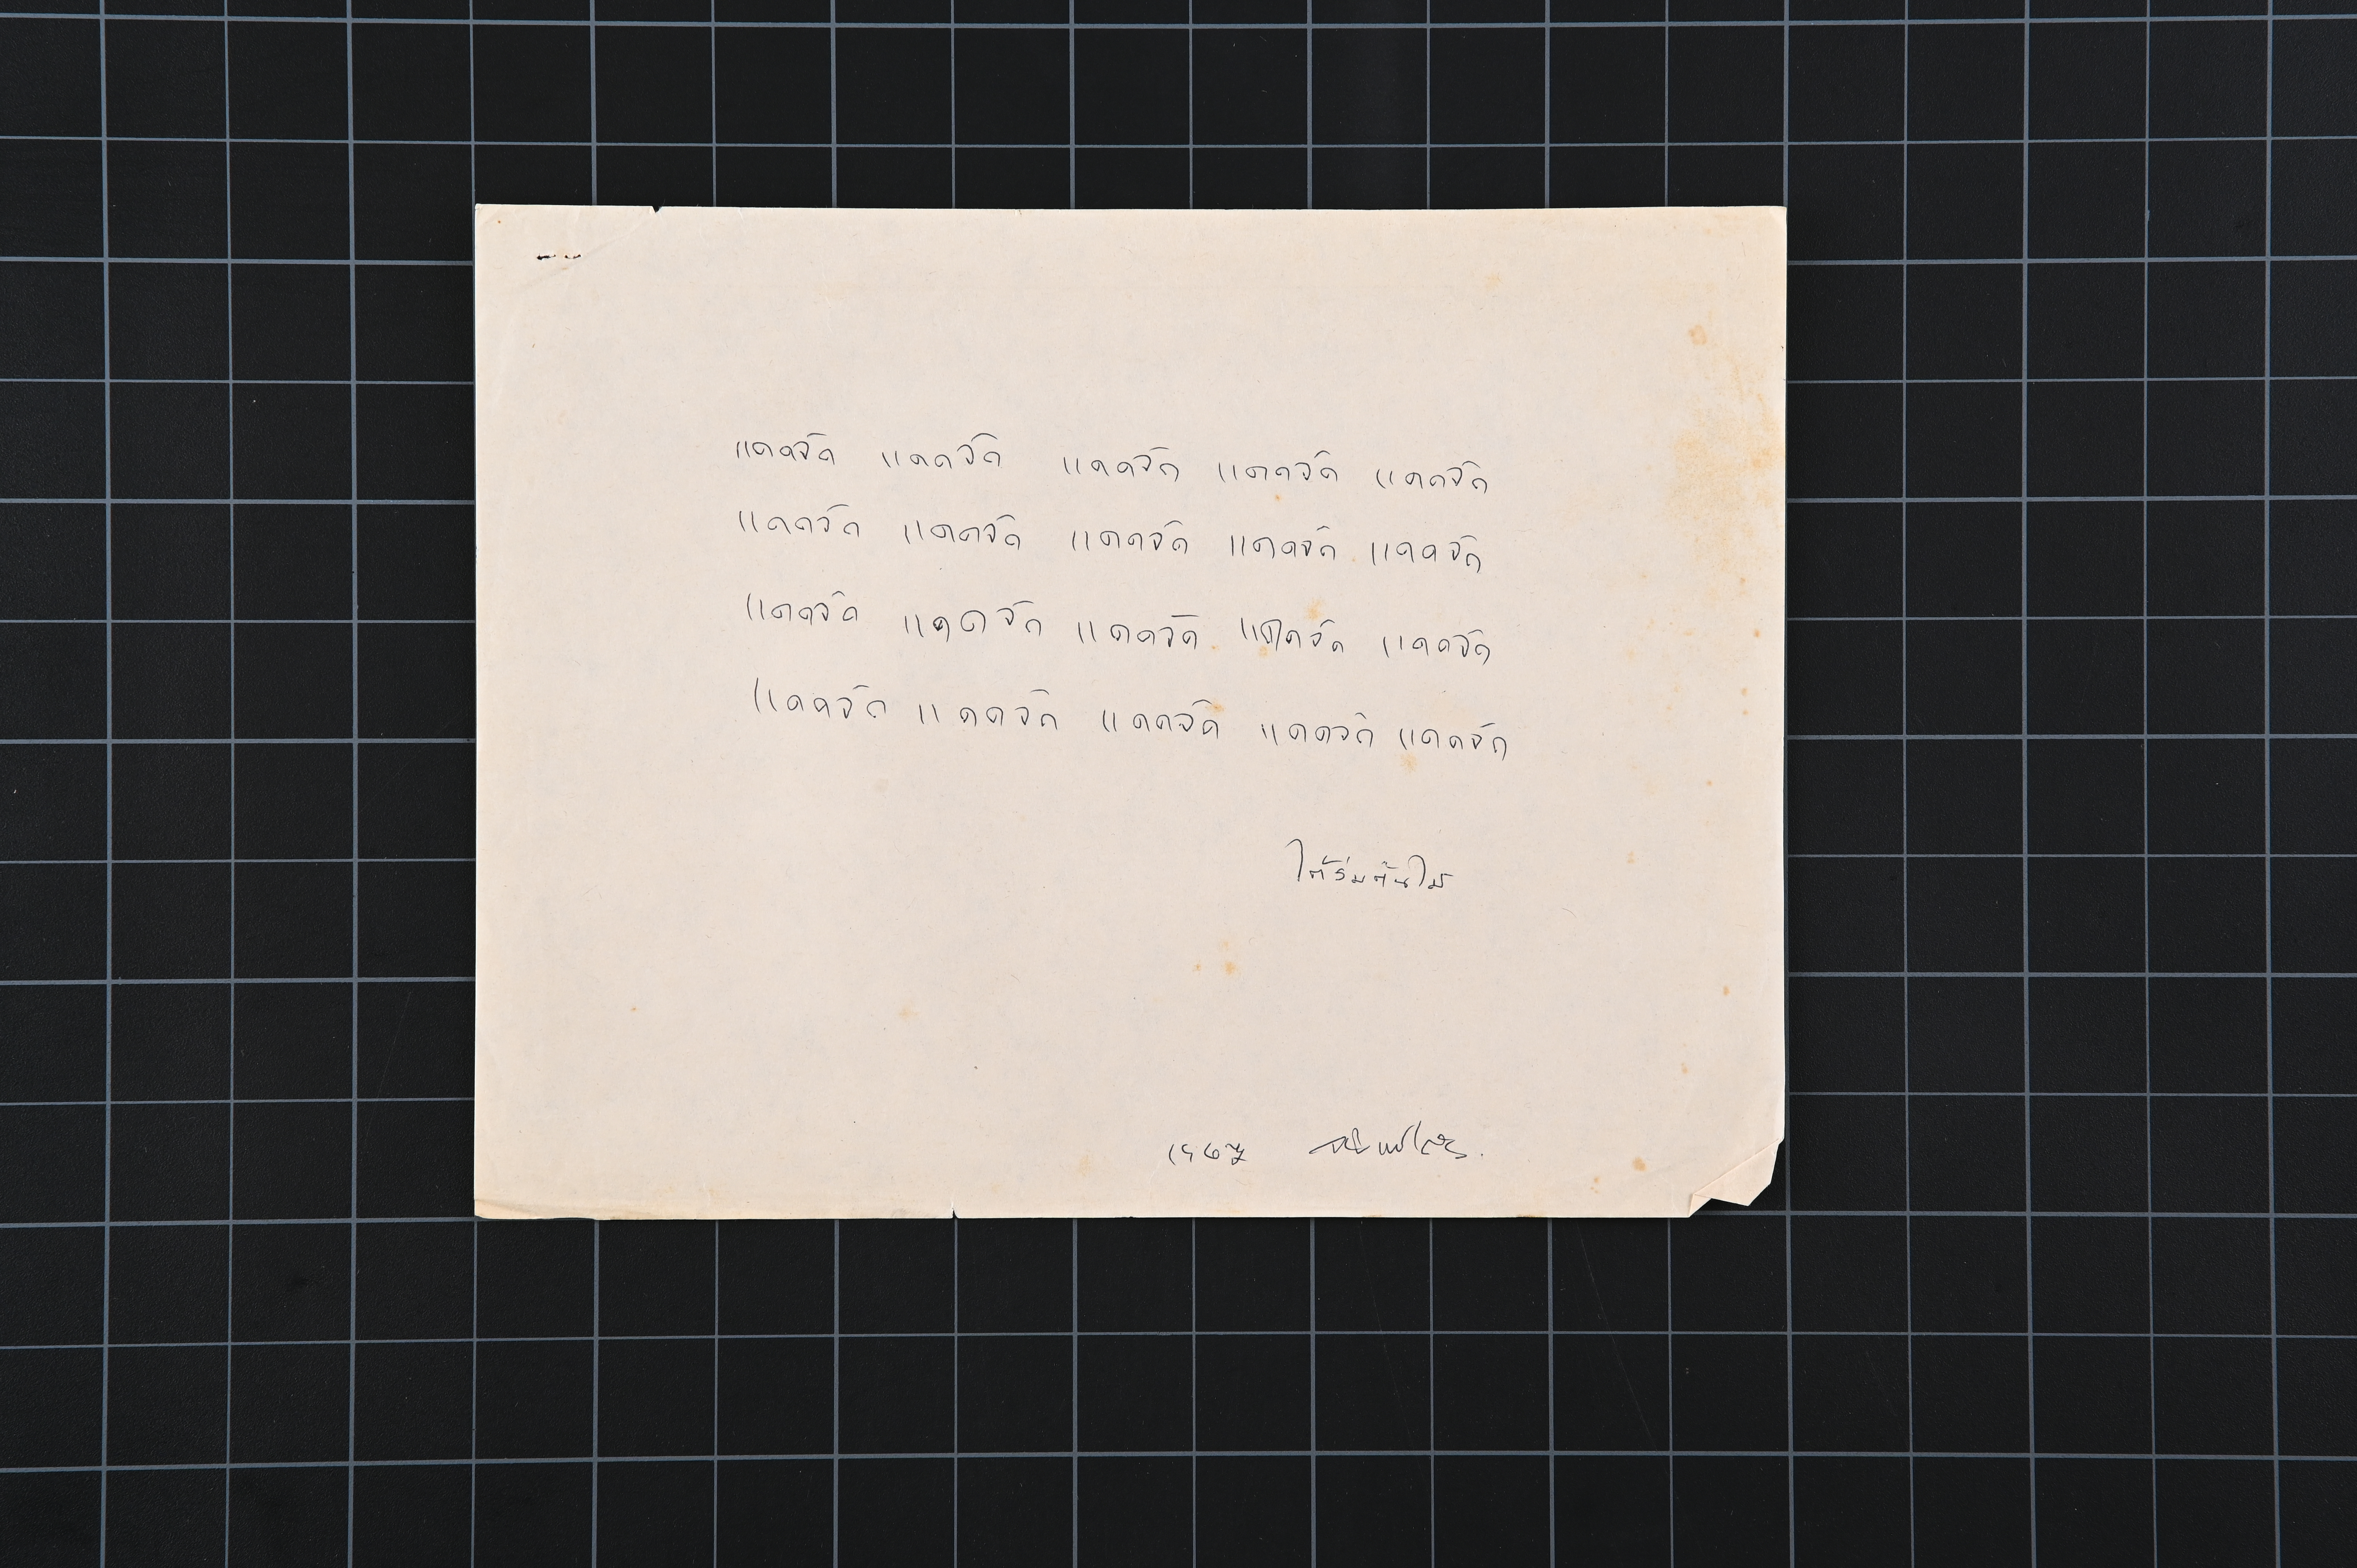 แดดจัด แดดจัด แดดจัด แดดจัด แดดจัด
แดดจัด แดดจัด แดดจัด แดดจัด แดดจัด
แดดจัด แดดจัด แดดจัด แดดจัด แดดจัด
แดดจัด แดดจัด แดดจัด แดดจัด แดดจัด
ใต้ร่มต้นไม้